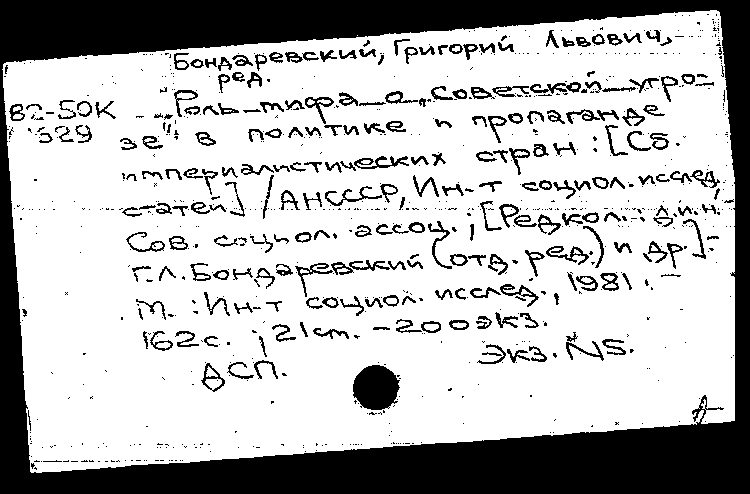 Бондаревский, Григорий Львович,
ред.
82-50К „Роль мифа о „советской угро-
529 зе“ в политике и пропаганде
империалистических стран : [Сб.
статей] / АНСССР, Ин-т социол. исслед,
Сов. социол. ассоц. ; [Редкол. : д.и.н.
Г.Л. Бондаревский (отд. ред.) и др.]. -
М. : Ин-т социол. исслед., 1981. -
162 с. ; 21 см. - 200 экз.
ДСП. Экз. N5.